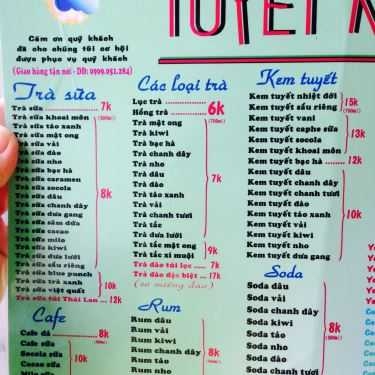 TUYẾT
Cảm ơn quý khách
đã cho chúng tôi cơ hội
được phục vụ quý khách
(Giao hàng tận nơi - DĐ: 0909.052.284)
Trà sữa
Trà sữa 7k
Trà sữa khoai môn
Trà sữa táo xanh
Trà sữa mật ong
Trà sữa vải
Trà sữa đào
Trà sữa nho
Trà sữa bạc hà
Trà sữa caramen
Trà sữa socola
Trà sữa dâu
Trà sữa chanh dây
Trà sữa dưa gang
Trà sữa sầm dứa
Trà sữa cacao
Trà sữa milo
Trà sữa kiwi
Trà sữa dưa lưới
Trà sữa sầu riêng
8k
Trà sữa blue punch
Trà sữa trà xanh
Trà sữa việt quất
10k
Trà sữa túi Thái Lan 12k
Cafe
Cafe đá
Cafe sữa
8k
Socola sữa
Cacao sữa
Milo sữa
10k
Các loại trà
Lục trà
Hồng trà
6k
Trà mật ong
Trà kiwi
Trà bạc hà
Trà chanh dây
Trà nho
Trà dâu
Trà đào
Trà táo xanh
Trà vải
Trà chanh tươi
Trà tắc
Trà dưa lưới
7k
Trà tắc mật ong
Trà tắc xí muội
9k
Trà đào túi lọc 7k
Trà đào đặc biệt 17k
(có miếng đào)
Rum
Rum dâu
Rum vải
Rum chanh dây
Rum kiwi
Rum táo
Rum nho
8k
Kem tuyết
Kem tuyết nhiệt đới
Kem tuyết sầu riêng
15k
Kem tuyết vani
Kem tuyết caphe sữa
Kem tuyết socola
Kem tuyết khoai môn
13k
Kem tuyết bạc hà 12k
Kem tuyết dâu
Kem tuyết chanh tươi
Kem tuyết chanh dây
Kem tuyết đào
Kem tuyết táo xanh
Kem tuyết vải
Kem tuyết kiwi
Kem tuyết nho
Kem tuyết dưa gang
10k
Soda
Soda dâu
Soda vải
Soda chanh dây
Soda kiwi
Soda táo
Soda nho
Soda đào
Soda chanh tươi
8k